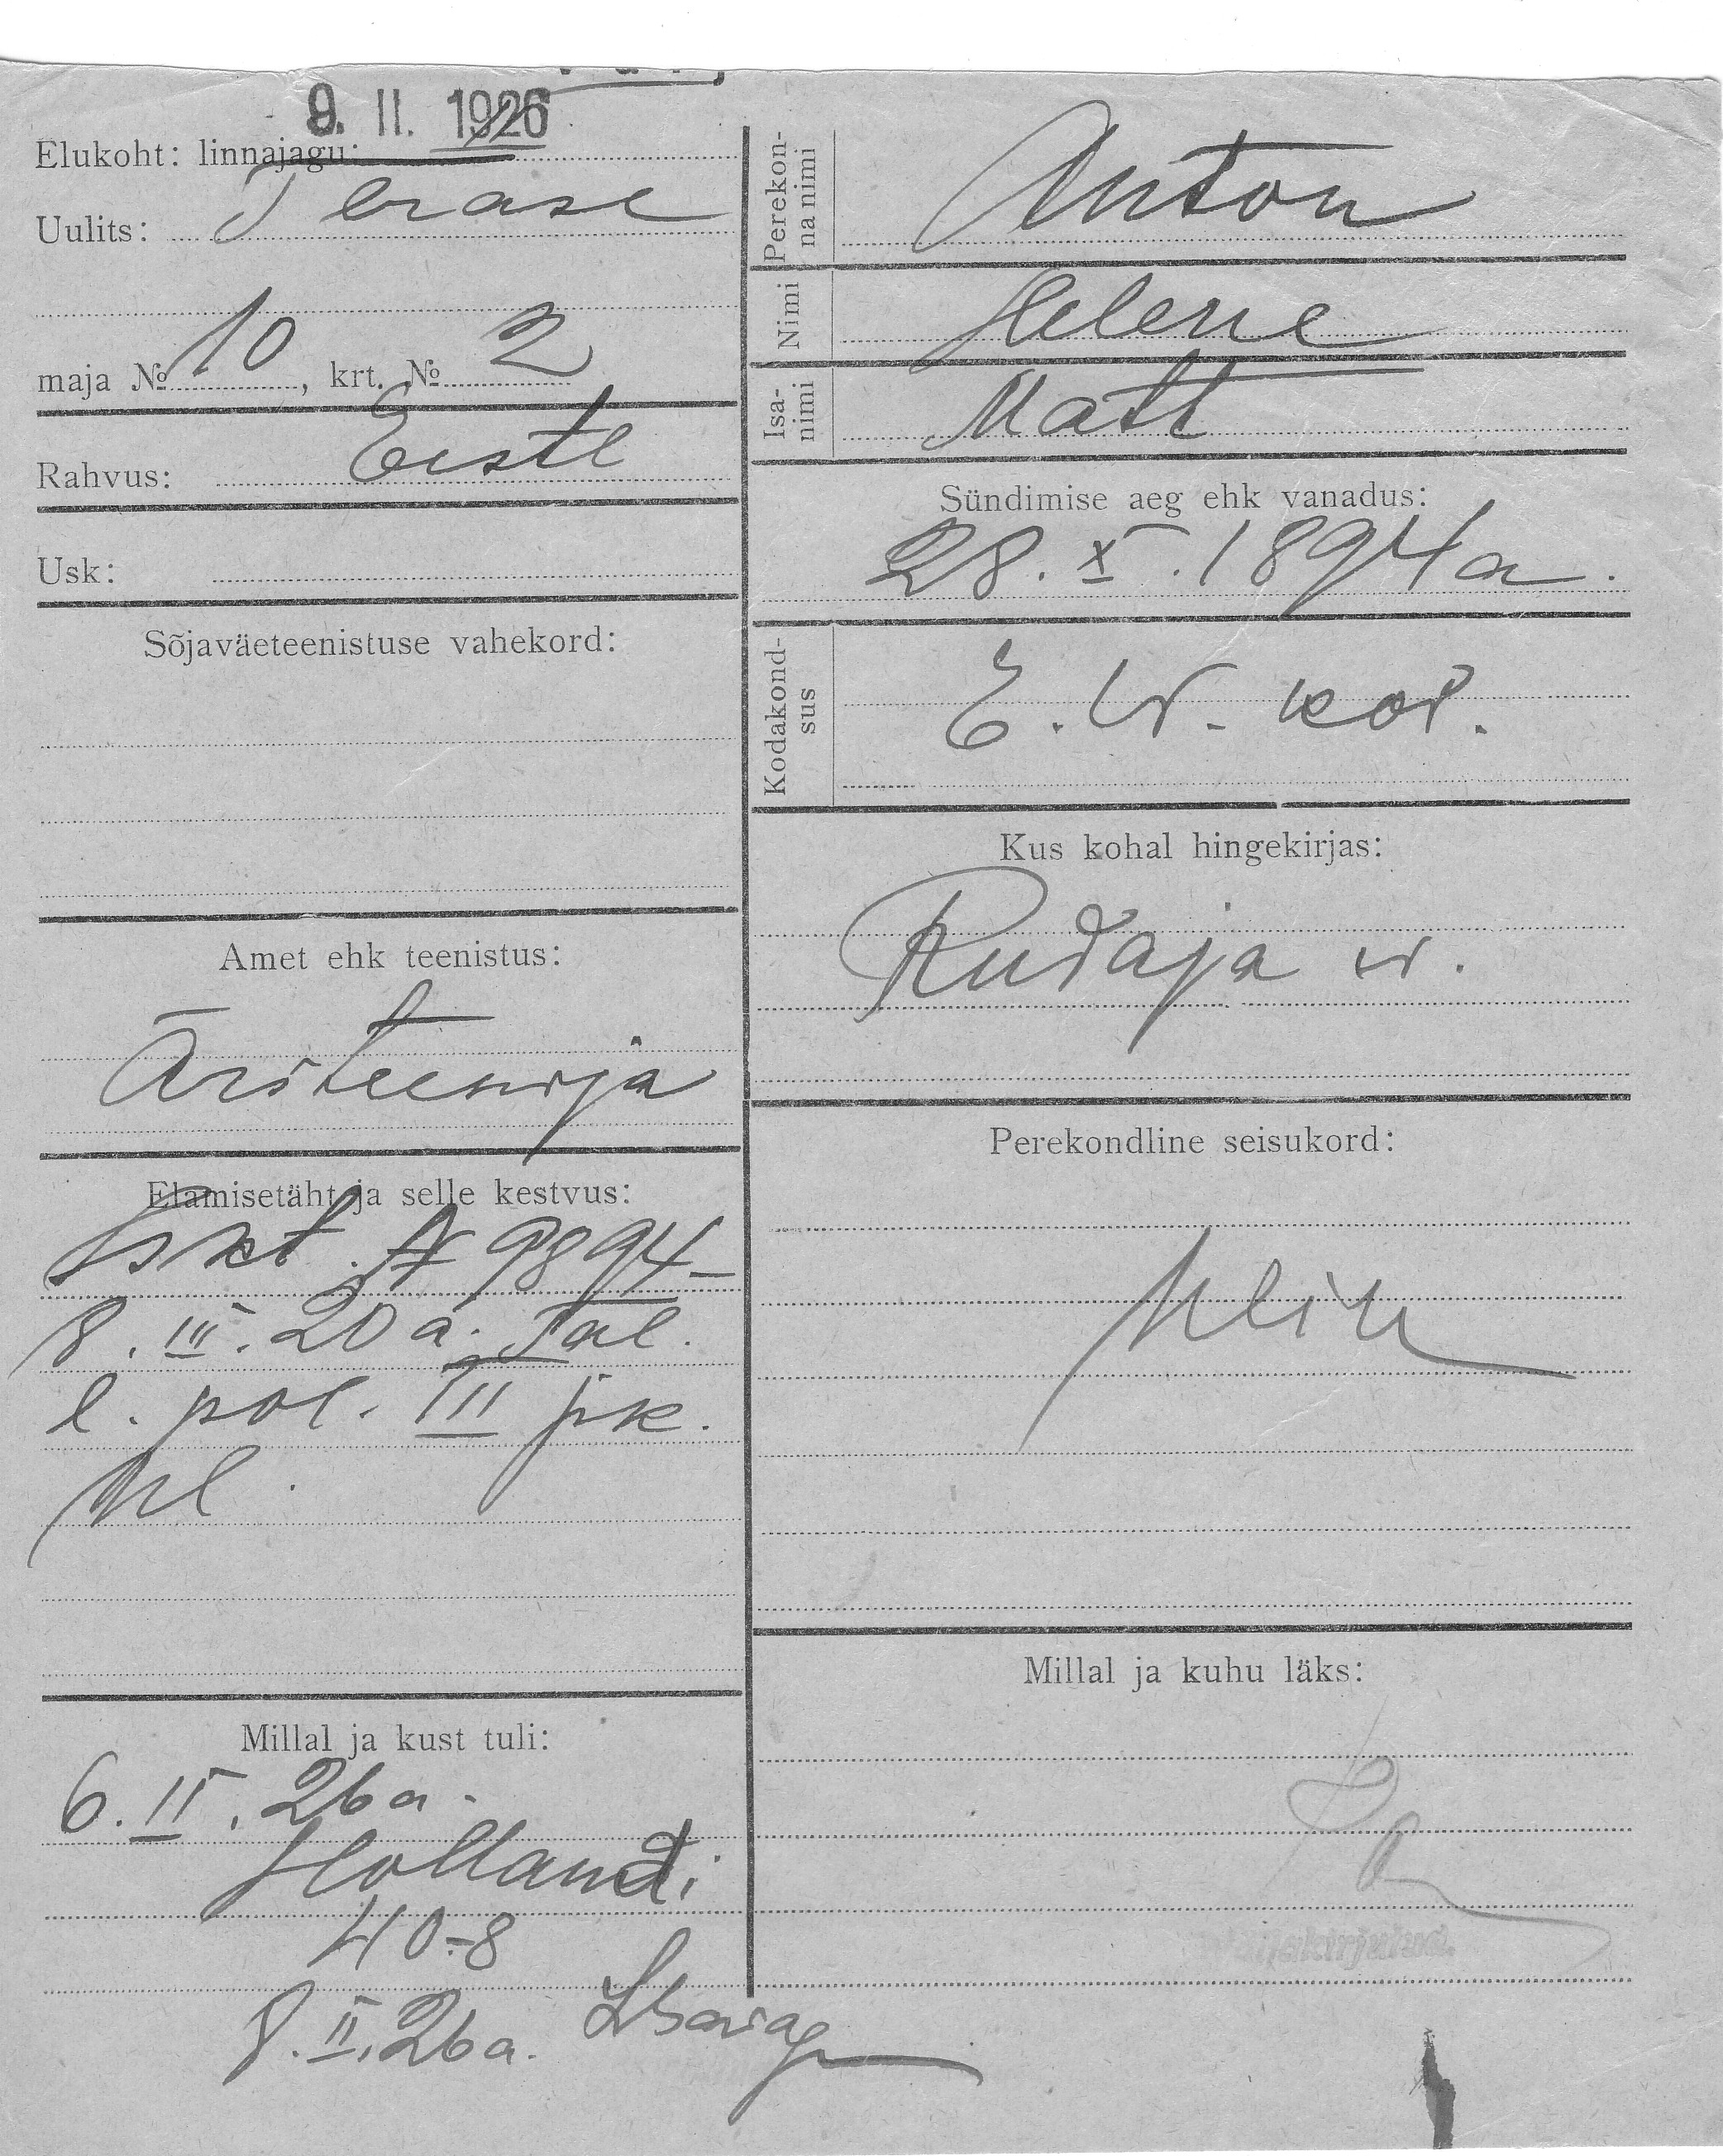 9. II. 1926
Elukoht: linnajagu:
Uulits: Terase
maja № 10, krt. № 2
Rahvus: Eestl
Usk:
Sõjaväeteenistuse vahekord:
Amet ehk teenistus:
Äriteenija
Elamisetäht ja selle kestvus:
Iskt. № 9894
8. III. 20 a. Tal.
l. pol. III jsk.
Perekonna nimi Anton
Nimi Helene
Isanimi Matt
Sündimise aeg ehk vanadus:
28. X. 1894 a.
Kodakondsus E. W. kod.
Kus kohal hingekirjas:
Rudaja w.
Perekondline seisukord:
Millal ja kust tuli:
6. II. 26 a.
Hollandi
40-8
8. II. 26 a.
Millal ja kuhu läks: